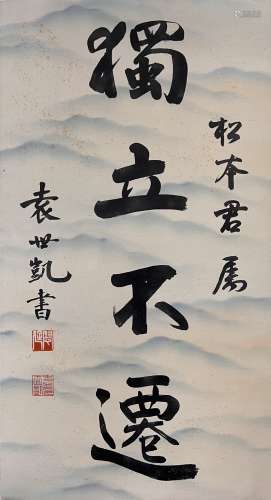 松本君属
獨立不遷
袁世凱書